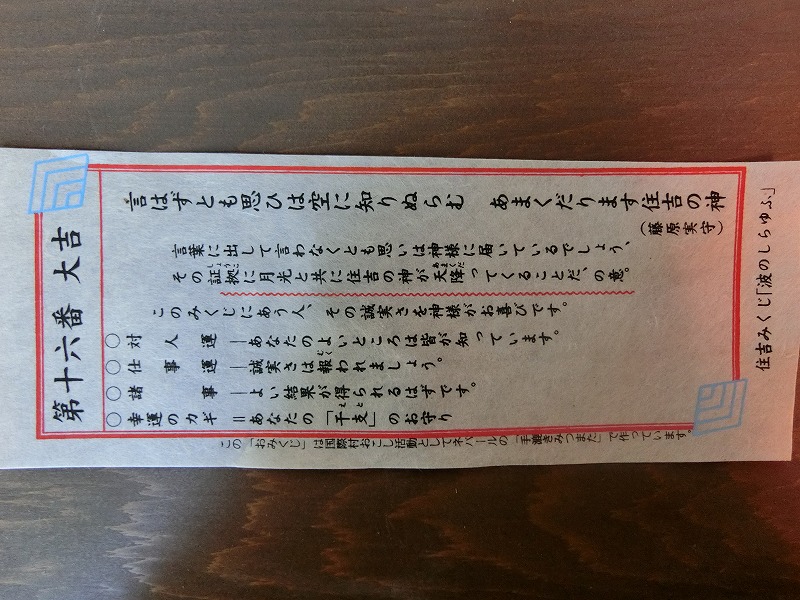 住吉みくじ「波のしらゆふ」
第十六番 大吉
言はずとも思ひは空に知りぬらむ あまくだります住吉の神
(藤原実守)
言葉に出して言わなくとも思いは神様に届いているでしょう、
その証拠に月光と共に住吉の神が天降ってくることだ、の意。
このみくじにあう人、その誠実さを神様がお喜びです。
○対人運―あなたのよいところは皆が知っています。
○仕事運―誠実さは報われましょう。
○諸事―よい結果が得られるはずです。
○幸運のカギ=あなたの「干支」のお守り
この「おみくじ」は国際村おこし活動としてネパールの「手漉きみつまた」で作っています。